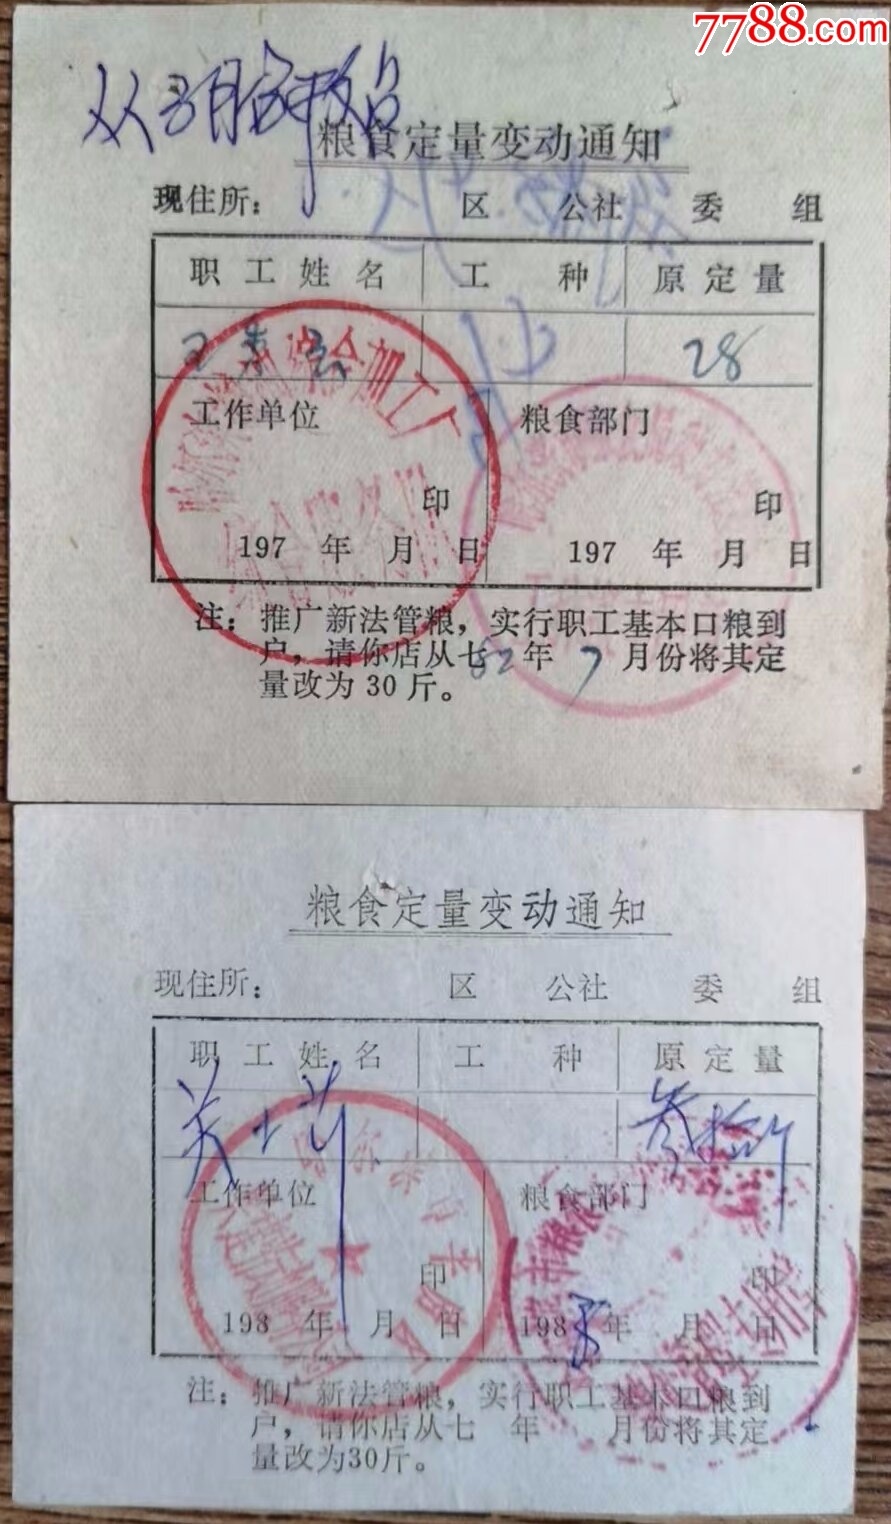 7788.com
从3月份开始
粮食定量变动通知
现住所： 区 公社 委 组
职工姓名 工种 原定量
王 28
加工厂
工作单位 粮食部门
印 印
197 年 月 日 197 年 月 日
注：推广新法管粮，实行职工基本口粮到
户，请你店从七82年7月份将其定
量改为30斤。
粮食定量变动通知
现住所： 区 公社 委 组
职工姓名 工种 原定量
叁拾斤
工作单位 粮食部门
哈尔滨市
市粮
印 印
198 年 月 日 198 年 月 日
注：推广新法管粮，实行职工基本口粮到
户，请你店从七 年 月份将其定
量改为30斤。